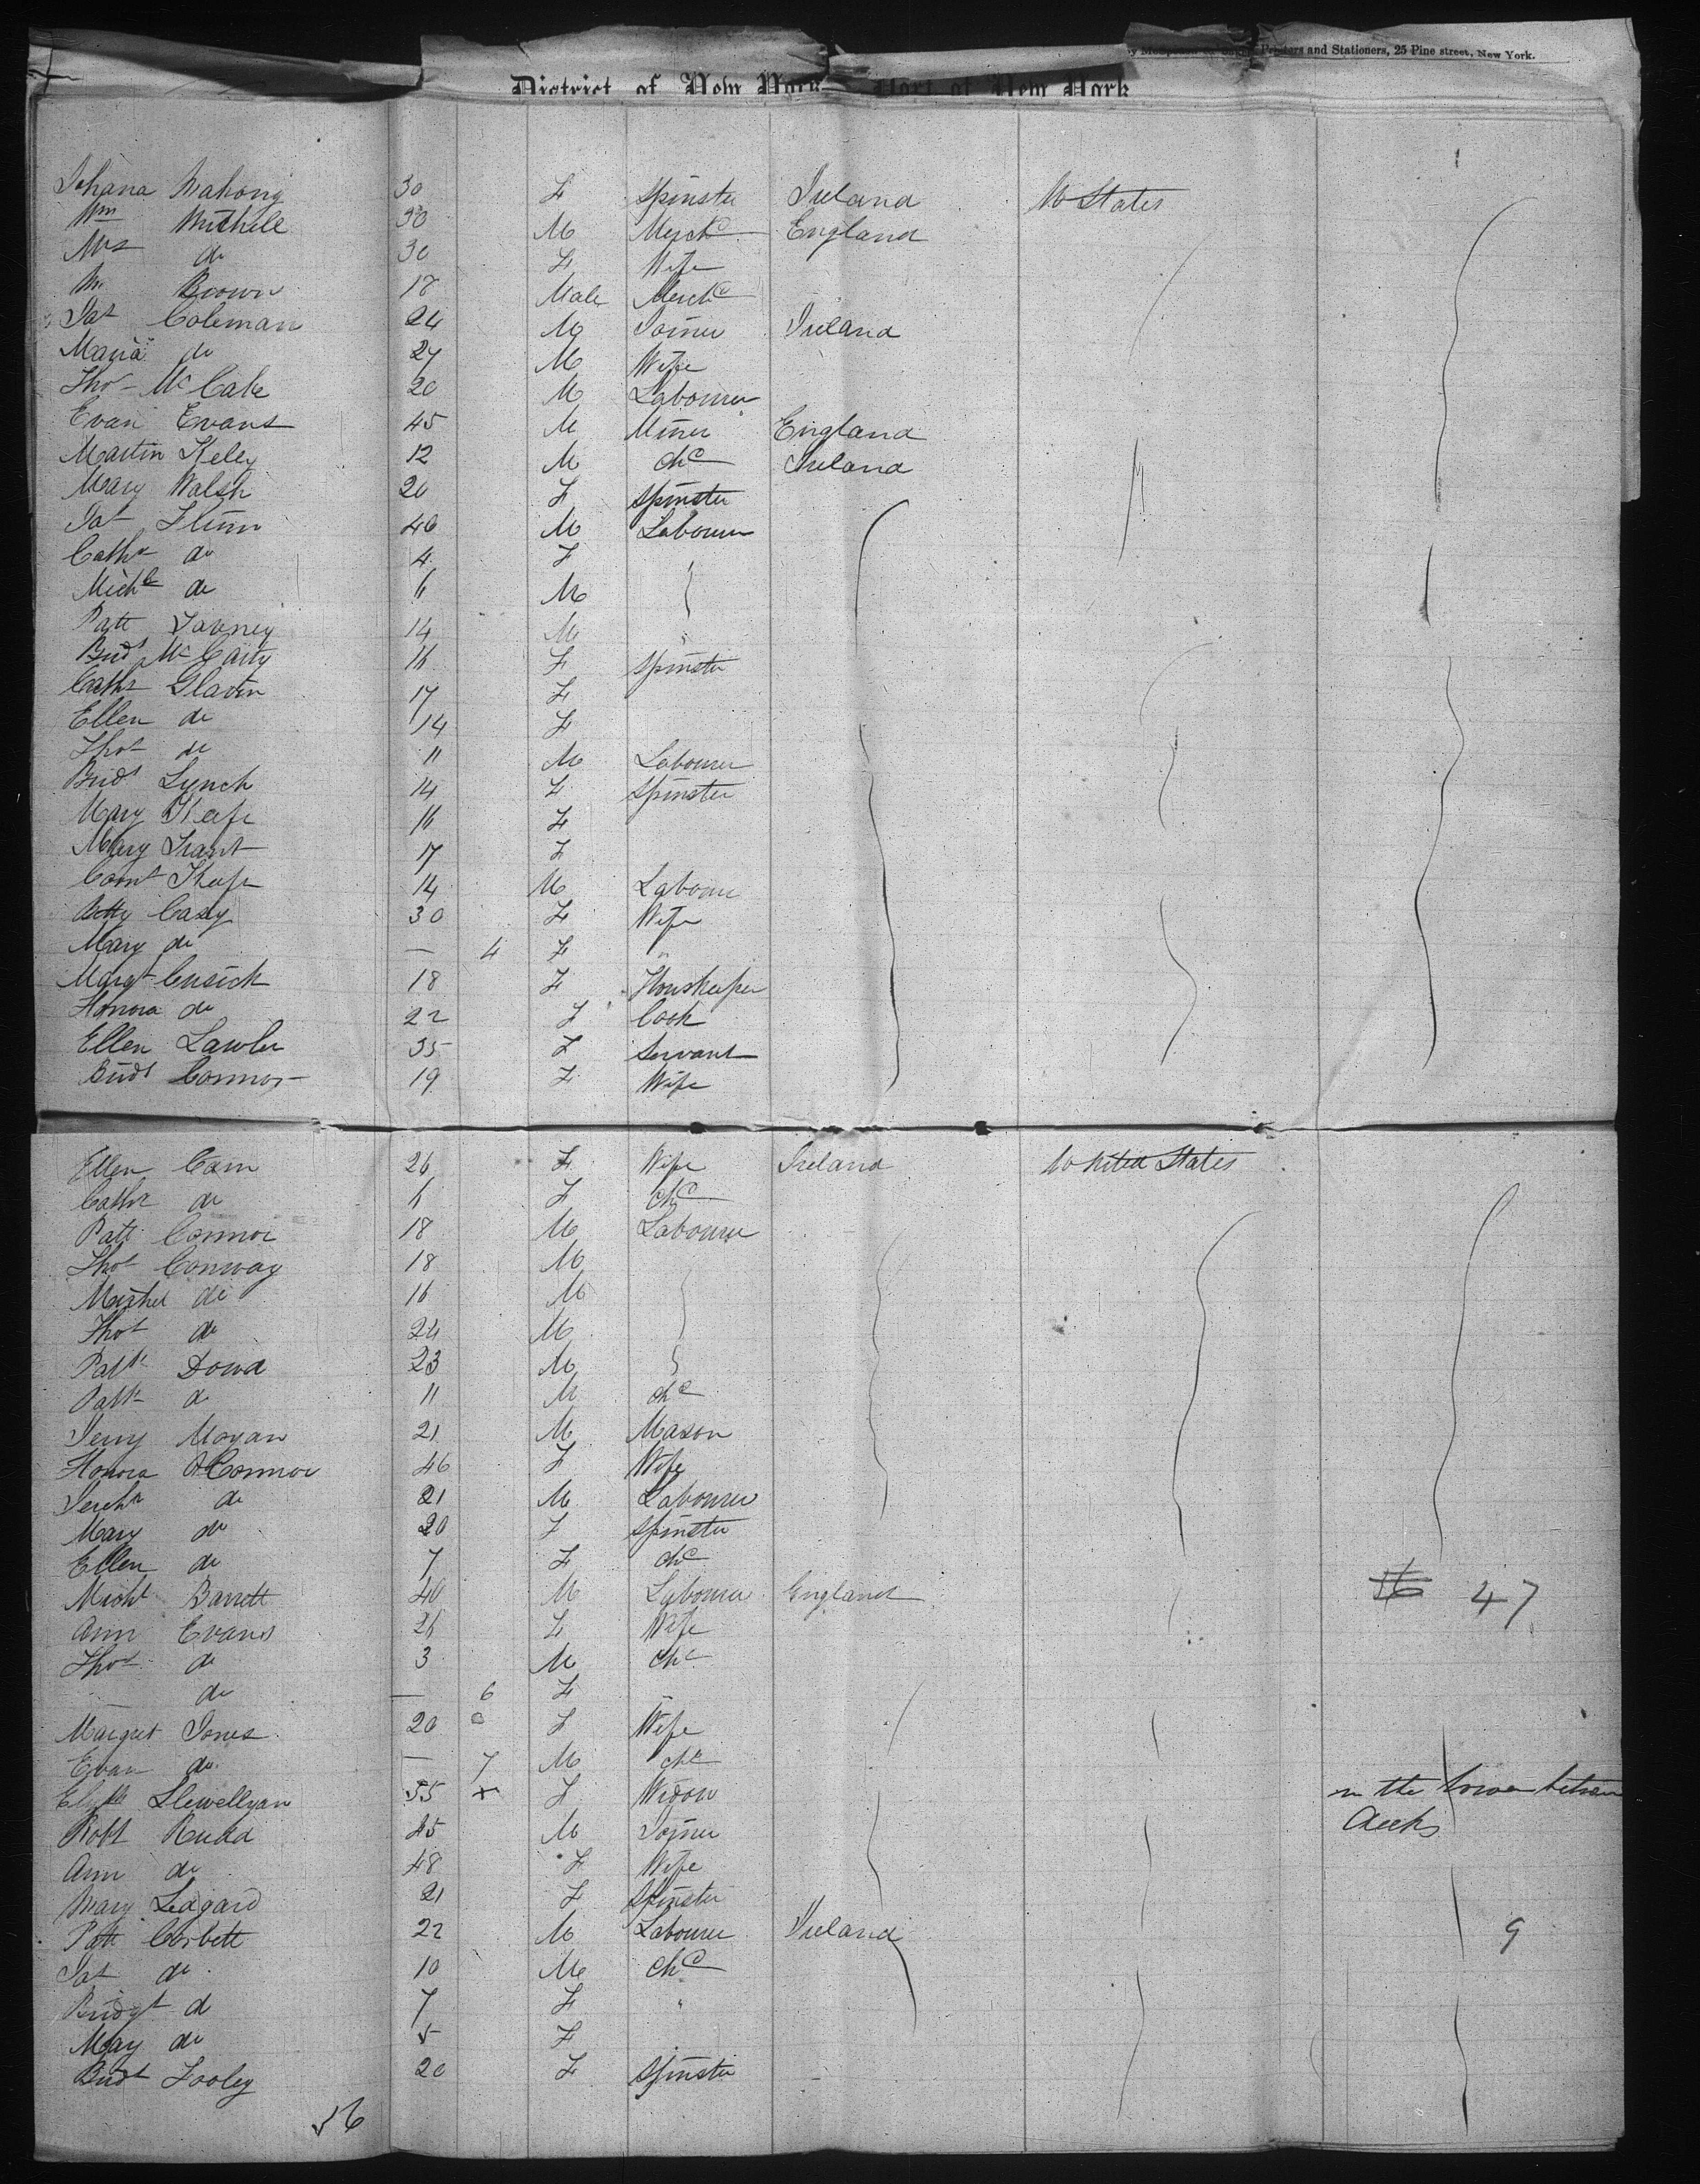 Printers and Stationers, 25 Pine street, New York.
District of New York Port of New York
Johana Mahony 30 F Spinster Ireland U States
Wm Mitchell 30 M Merct England
Mrs do 30 F Wife
Mr Brown 18 Male Merct
Pat Coleman 24 M Joiner Ireland
Maria do 27 M Wife
Thos McCabe 20 M Labourer
Evan Evans 45 M Miner England
Martin Kelly 12 M Chd Ireland
Mary Walsh 20 F Spinster
Pat Flinn 40 M Labourer
Cathe do 4 F
Michl do 6 M
Patt 14 M "
Bridt McCarty 16 F Spinster
Cathe Glavin 17 F
Ellen do 14 F
Thos do 11 M Labourer
Bridt Lynch 14 F Spinster
Mary Keefe 16 F
Mary Trant 17 F
Keefe 14 M Labourer
Betty Casey 30 F Wife
Mary do — 4 F "
Margt Cusick 18 F Housekeeper
Honora do 22 F Cook
Ellen Lawler 35 F Servant
Bridt Connor 19 F Wife
Ellen 26 F Wife Ireland United States
Cathe do 6 F Chd
Patt Connor 18 M Labourer
Thos Conway 18 M
Michel do 16 M
Thos do 24 M
Patk Dowd 23 M
Patk do 11 M Chd
Jerry Moran 21 M Mason
Honora OConnor 46 F Wife
do 21 M Labourer
Mary do 20 F Spinster
Ellen do 7 F Chd
Michl Barrett 40 M Labourer England 56 47
Ann Evans 26 F Wife
Thos do 3 M Chd
do — 6 F "
Margret Jones 20 F Wife
Evan do — 7 M Chd
Llewellyan 55 x F Widow in the lower between
Robt Rudd 45 M Joiner decks
Ann do 48 F Wife
Mary Ledgard 21 F Spinster
Patt Corbett 22 M Labourer Ireland 9
Pat do 10 M Chd
Bridgt do 7 F "
May do 5 F
Bridt Fooley 20 F Spinster
56